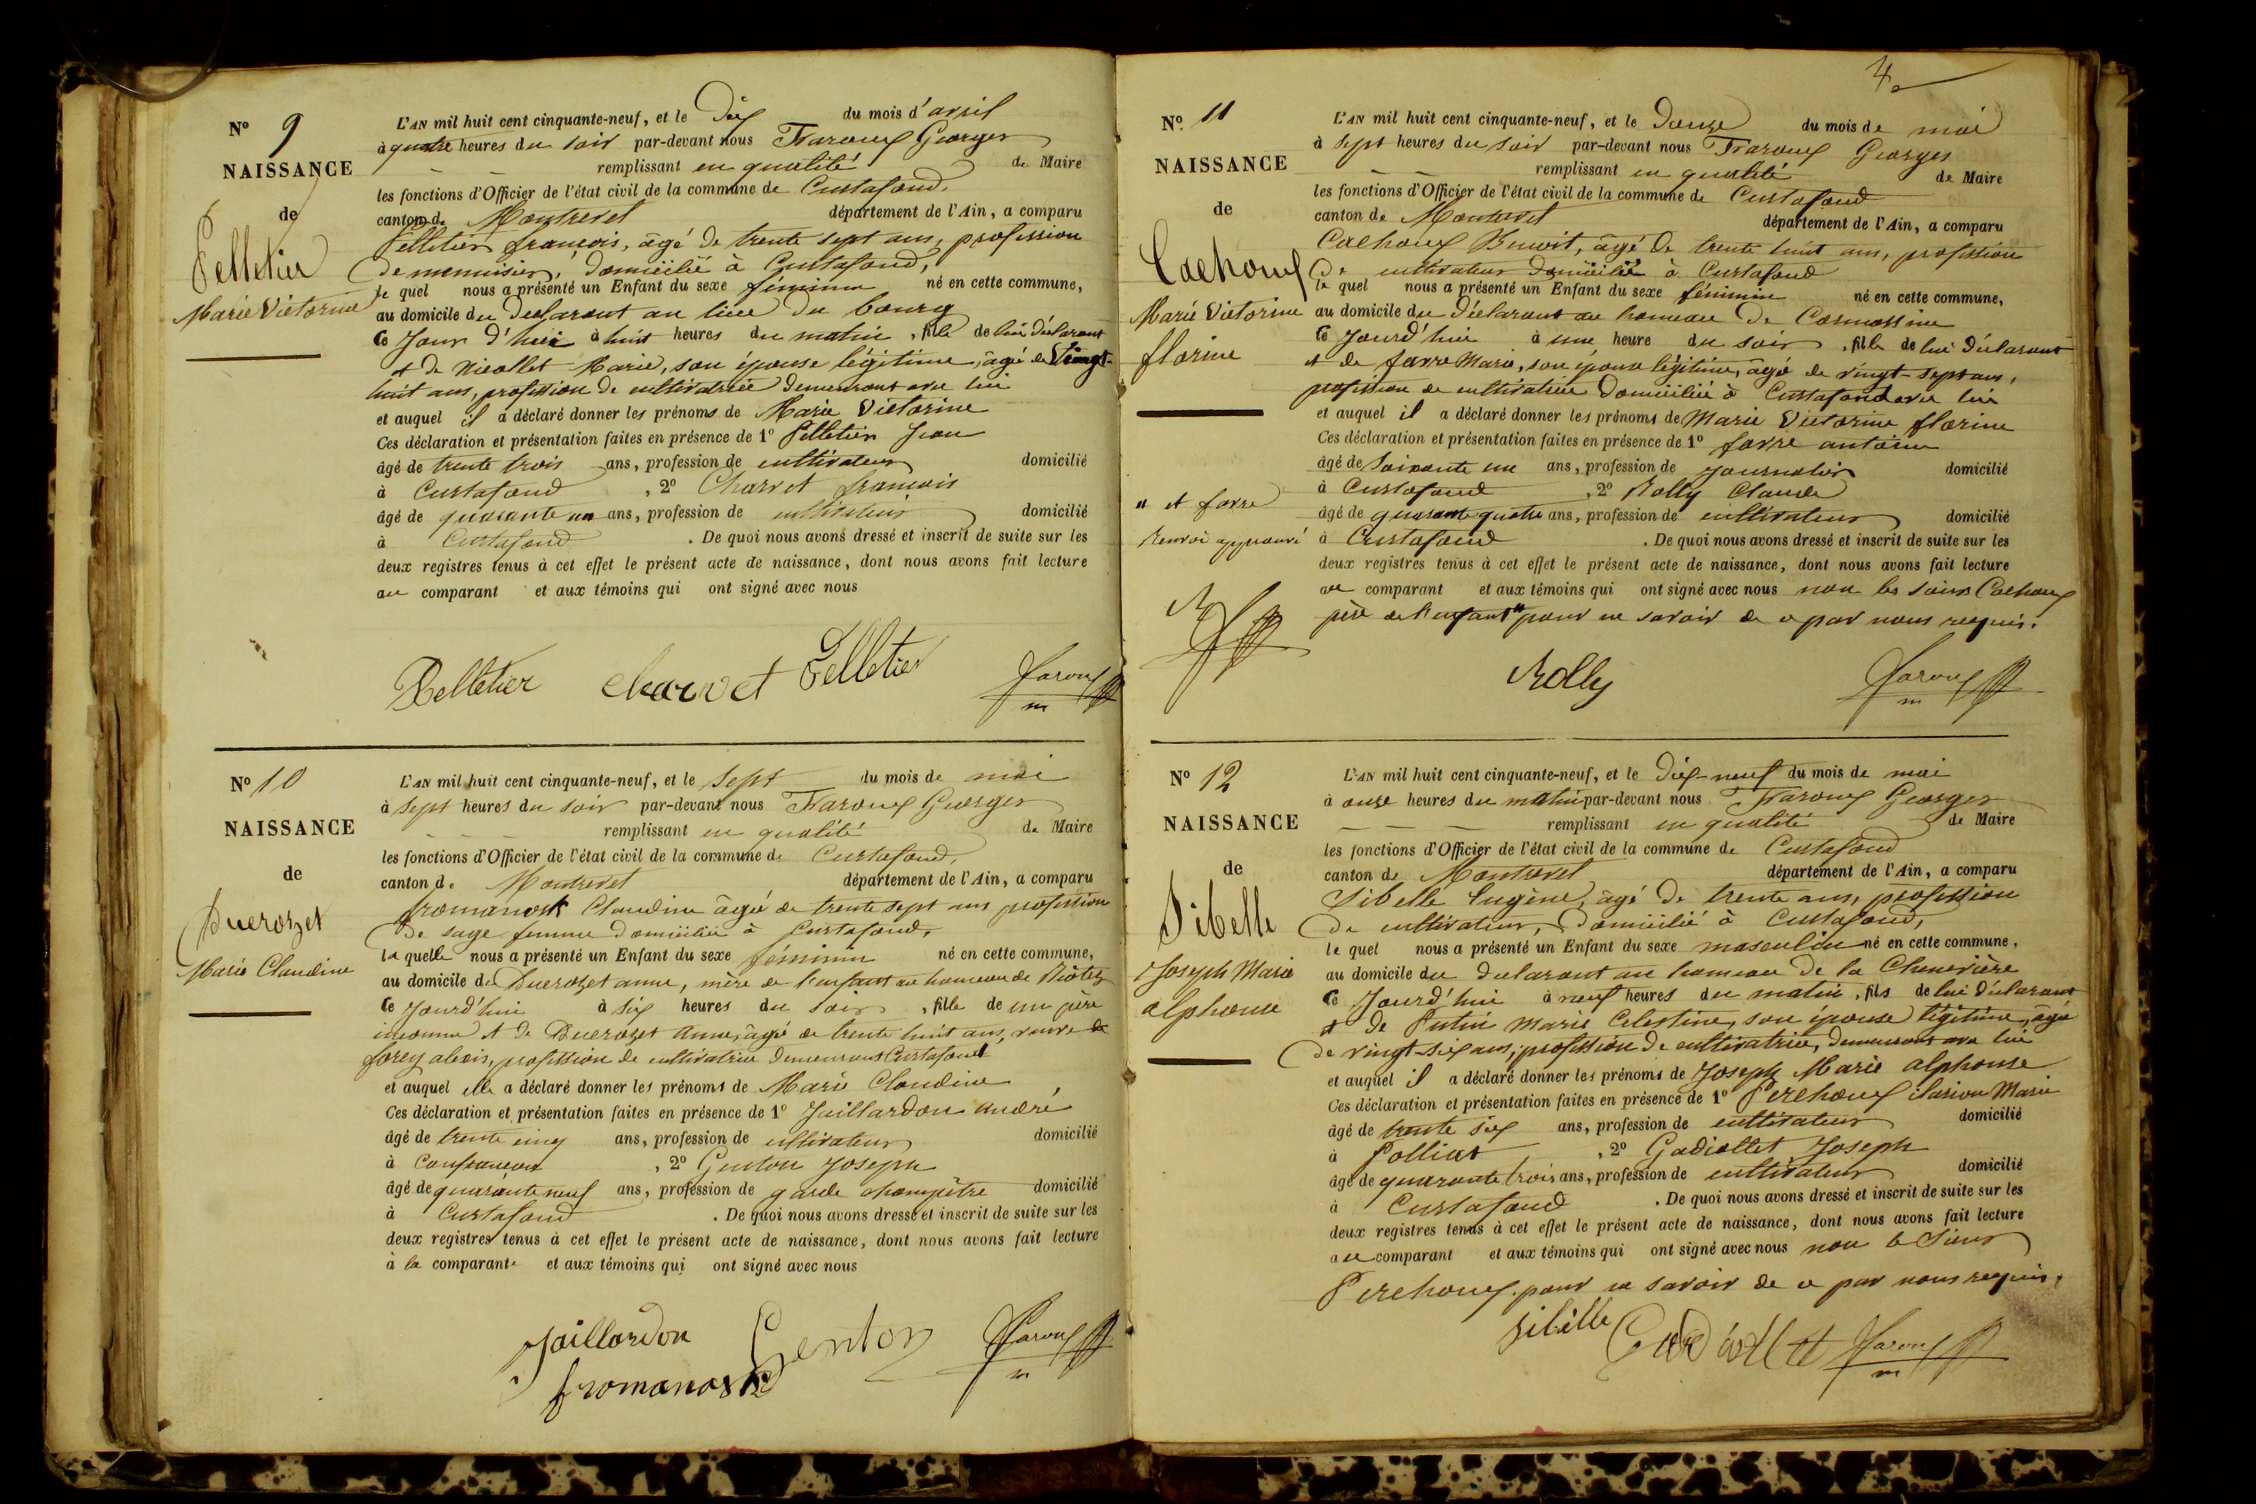 N° 9
NAISSANCE
de
Pelletier
Marie Victorine
L'AN mil huit cent cinquante-neuf, et le Dix du mois d'avril
à quatre heures du soir par-devant nous Faroux Georges
remplissant en qualité de Maire
les fonctions d'Officier de l'état civil de la commune de Curtafond,
canton de Montrevel département de l'Ain, a comparu
Pelletier françois, âgé de trente sept ans, profession
de menuisier, domicilié à Curtafond,
le quel nous a présenté un Enfant du sexe féminin né en cette commune,
au domicile du declarant au lieu du bourg
Ce Jour d'hui à huit heures du matin, fille de lui déclarant
et de Nicollet Marie, son épouse légitime, âgé de Vingt-
huit ans, profession de cultivatrice demeurant avec lui
et auquel il a déclaré donner les prénoms de Marie Victorine
Ces déclaration et présentation faites en présence de 1° Pelletier Jean
âgé de trente trois ans, profession de cultivateur domicilié
à Curtafond, 2° Charvet francois
âgé de quarante un ans, profession de cultivateur domicilié
à Curtafond. De quoi nous avons dressé et inscrit de suite sur les
deux registres tenus à cet effet le présent acte de naissance, dont nous avons fait lecture
au comparant et aux témoins qui ont signé avec nous
Pelletier charvet Pelletier Faroux
m
N° 10
NAISSANCE
de
Ducrozet
Marie Claudine
L'AN mil huit cent cinquante-neuf, et le Sept du mois de mai
à sept heures du soir par-devant nous Faroux Georges
remplissant en qualité de Maire
les fonctions d'Officier de l'état civil de la commune de Curtafond,
canton de Montrevel département de l'Ain, a comparu
fromanosk Claudine âgé de trente sept ans profession
de sage femme domiciliée à Curtafond,
la quelle nous a présenté un Enfant du sexe féminin né en cette commune,
au domicile de Ducrozet anne, mère de l'enfant au hameau de
Ce Jourd'hui à six heures du soir, fille de un père
inconnu et de Ducrozet Anne, âgé de trente huit ans, veuve de
forey alexis, profession de cultivatrice demeurant Curtafond
et auquel elle a déclaré donner les prénoms de Marie Claudine
Ces déclaration et présentation faites en présence de 1° Jaillardon André
âgé de trente cinq ans, profession de cultivateur domicilié
à Confrancon, 2° Genton Joseph
âgé de quarante neuf ans, profession de garde champêtre domicilié
à Curtafond. De quoi nous avons dressé et inscrit de suite sur les
deux registres tenus à cet effet le présent acte de naissance, dont nous avons fait lecture
à la comparante et aux témoins qui ont signé avec nous
Jaillardon Genton Faroux
fromanosk m
4
N° 11
NAISSANCE
de
Cachoux
Marie Victorine
florine
L'AN mil huit cent cinquante-neuf, et le Douze du mois de mai
à sept heures du soir par-devant nous Faroux Georges
remplissant en qualité de Maire
les fonctions d'Officier de l'état civil de la commune de Curtafond
canton de Montrevel département de l'Ain, a comparu
Cachoux Benoit, âgé de trente huit ans, profession
de cultivateur domicilié à Curtafond
le quel nous a présenté un Enfant du sexe féminin né en cette commune,
au domicile du déclarant au hameau de Cormassine
Ce Jourd'hui à une heure du soir, fille de lui déclarant
et de favre Marie, son épouse légitime, âgé de vingt-sept ans,
profession de cultivatrice domiciliée à Curtafond avec lui
et auquel il a déclaré donner les prénoms de Marie Victorine florine
Ces déclaration et présentation faites en présence de 1° favre antoine
âgé de Soixante un ans, profession de Journalier domicilié
à Curtafond, 2° Rolly Claude
âgé de quarante quatre ans, profession de cultivateur domicilié
à Curtafond. De quoi nous avons dressé et inscrit de suite sur les
deux registres tenus à cet effet le présent acte de naissance, dont nous avons fait lecture
au comparant et aux témoins qui ont signé avec nous non les Sieurs Cachoux
père de l'enfant" pour ne savoir de ce par nous requis.
" et favre
Renvoi approuvé
R F
Rolly Faroux
m
N° 12
NAISSANCE
de
Sibelle
Joseph Marie
alphonse
L'AN mil huit cent cinquante-neuf, et le Dix-neuf du mois de mai
à onze heures du matin par-devant nous Faroux Georges
remplissant en qualité de Maire
les fonctions d'Officier de l'état civil de la commune de Curtafond
canton de Montrevel département de l'Ain, a comparu
Sibelle Eugène, âgé de trente ans, profession
de cultivateur, domicilié à Curtafond,
le quel nous a présenté un Enfant du sexe masculin né en cette commune,
au domicile du declarant au hameau de la Chenevière
Ce Jourd'hui à neuf heures du matin, fils de lui déclarant
et de Putin Marie Celestine, son épouse légitime, âgé
de vingt-six ans, profession de cultivatrice, demeurant avec lui
et auquel il a déclaré donner les prénoms de Joseph Marie alphonse
Ces déclaration et présentation faites en présence de 1° Perchoux ilarion Marie
âgé de trente six ans, profession de cultivateur domicilié
à Polliat, 2° Gadiollet Joseph
âgé de quarante trois ans, profession de cultivateur domicilié
à Curtafond. De quoi nous avons dressé et inscrit de suite sur les
deux registres tenus à cet effet le présent acte de naissance, dont nous avons fait lecture
au comparant et aux témoins qui ont signé avec nous non le Sieur
Perchoux pour ne savoir de ce par nous requis.
sibelle Gadiollet Faroux
m